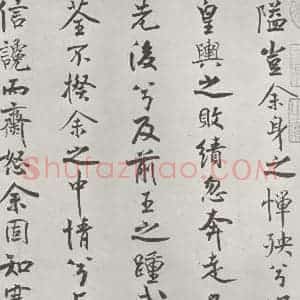 隘豈余身之憚殃兮
皇輿之敗績忽奔走
先後兮及前王之踵武
荃不揆余之中情兮
信讒而齋怒余固知